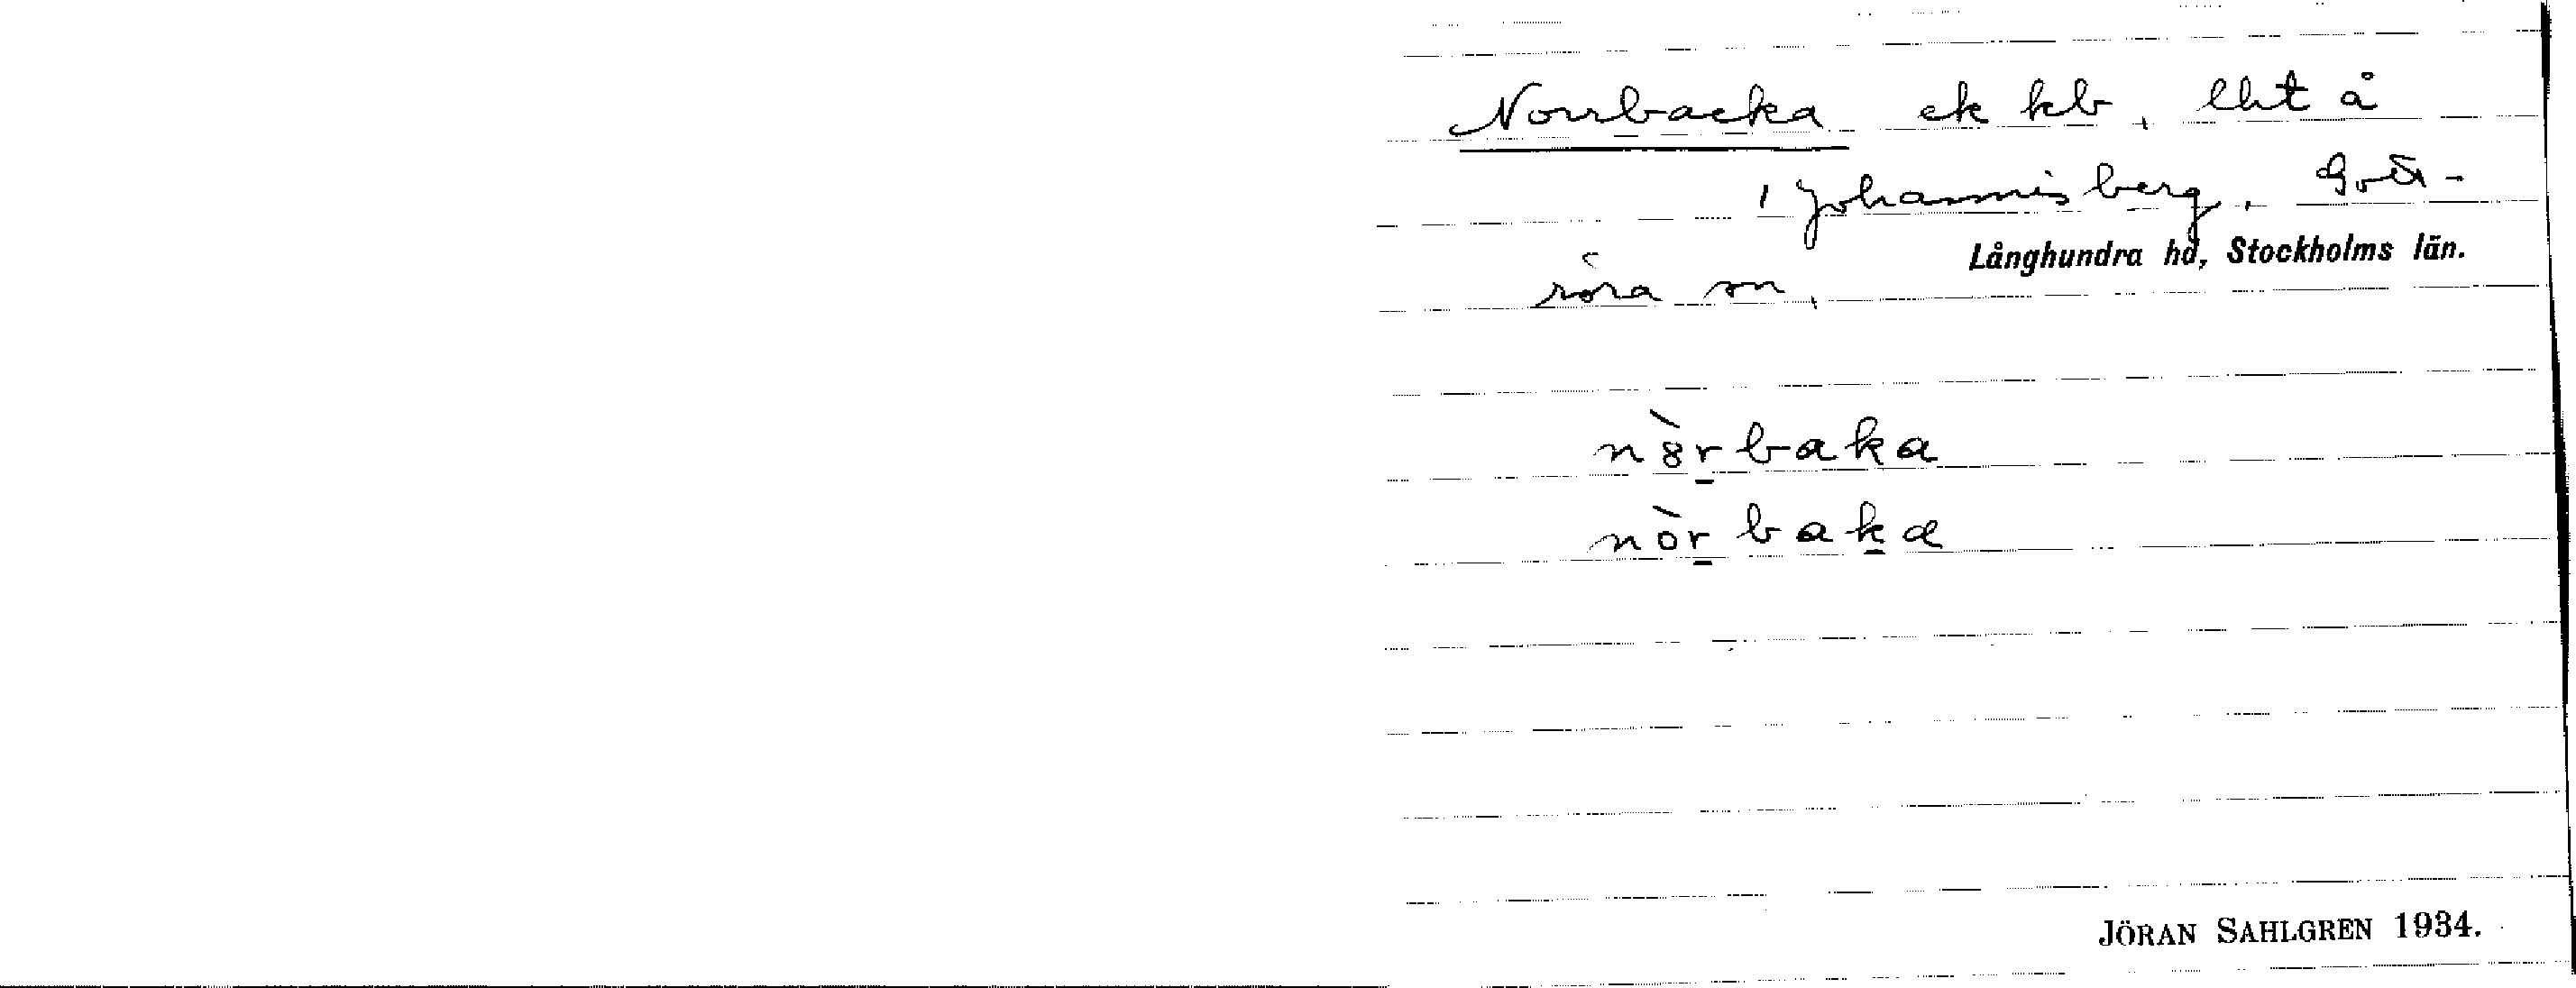 Norrbacka ek kb, lht å
Johannisberg, Gott-
Långhundra hd, Stockholms län.
röra sn,
nȯ̀rbaka
nòr baka
JÖRAN SAHLGREN 1934.